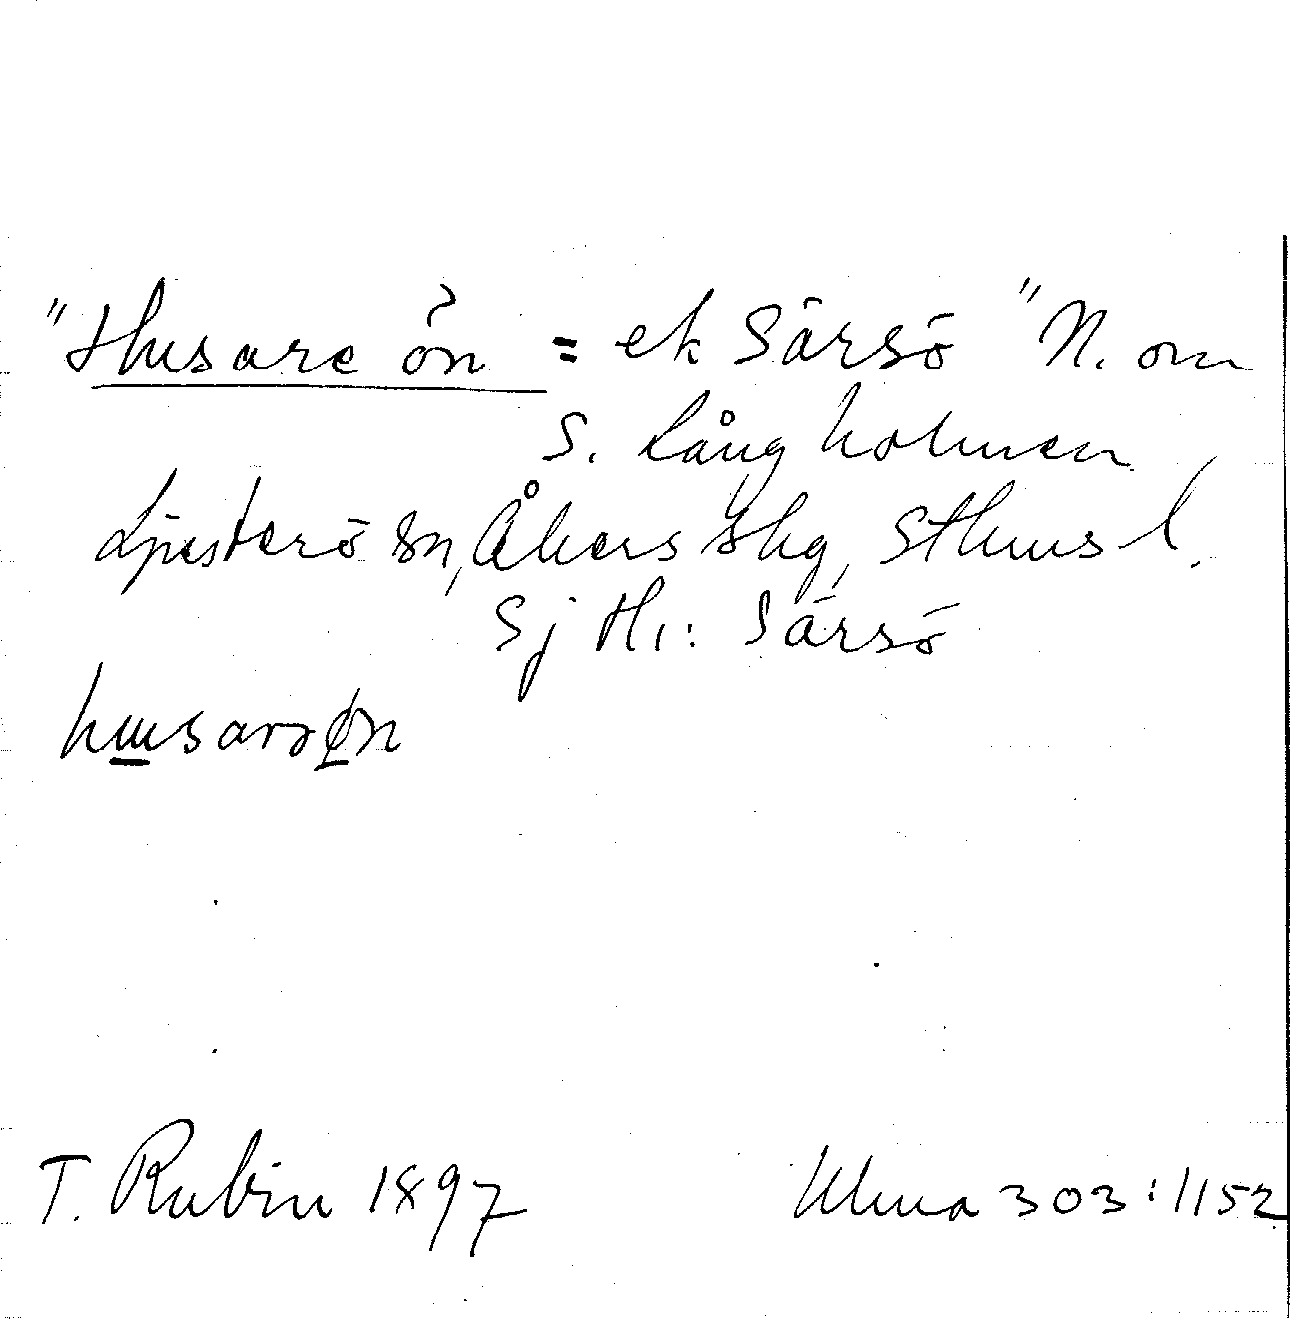 "Husare ön = ek Särsö" N. om
S. Långholmen
Ljusterö sn, Åkers skg, Sthms l.
Sj H1: Särsö
husarəøn
T. Rubin 1897 Ulma 303:1152